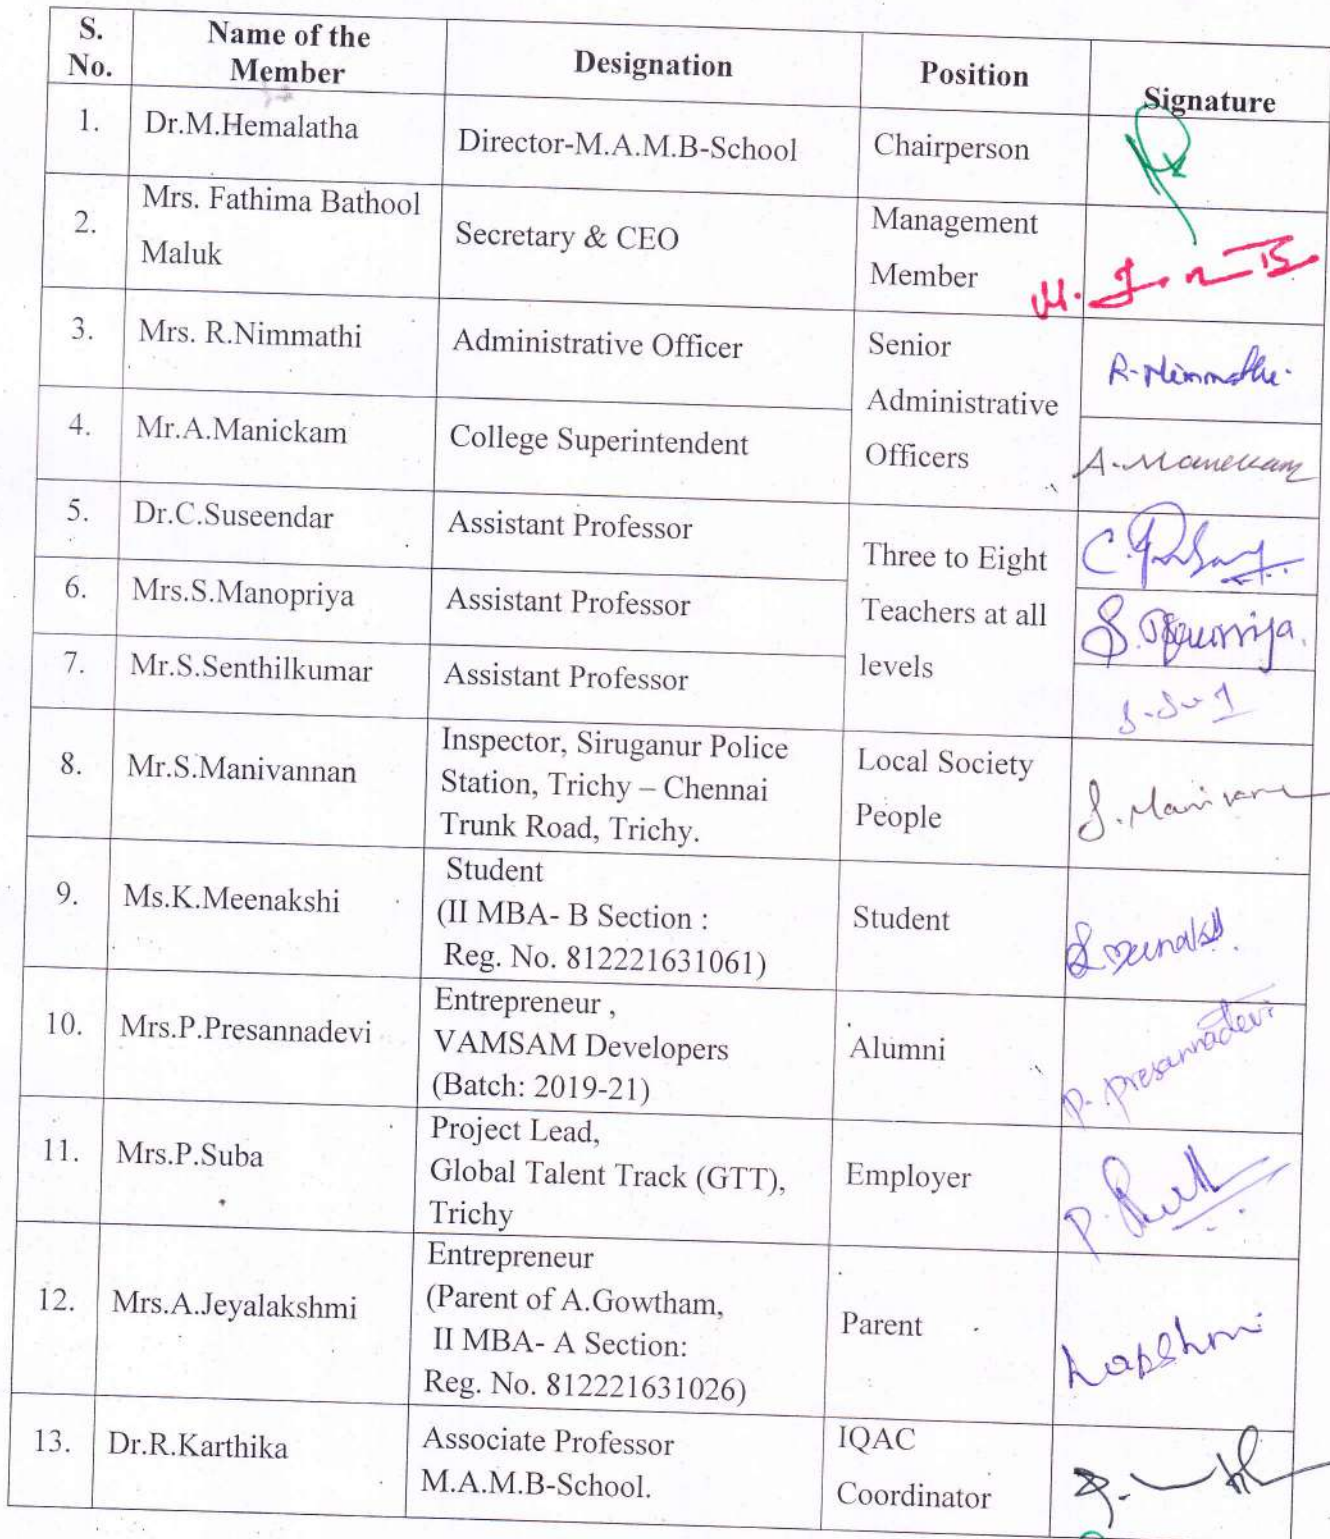 S. No. Name of the Member Designation Position Signature
1. Dr.M.Hemalatha Director-M.A.M.B-School Chairperson
2. Mrs. Fathima Bathool Maluk Secretary & CEO Management Member
3. Mrs. R.Nimmathi Administrative Officer Senior Administrative Officers R-Nimmathi.
4. Mr.A.Manickam College Superintendent A-Manickam
5. Dr.C.Suseendar Assistant Professor Three to Eight Teachers at all levels
6. Mrs.S.Manopriya Assistant Professor
7. Mr.S.Senthilkumar Assistant Professor
8. Mr.S.Manivannan Inspector, Siruganur Police
Station, Trichy – Chennai
Trunk Road, Trichy. Local Society People
9. Ms.K.Meenakshi Student
(II MBA- B Section :
Reg. No. 812221631061) Student
10. Mrs.P.Presannadevi Entrepreneur ,
VAMSAM Developers
(Batch: 2019-21) Alumni P. Presannadevi
11. Mrs.P.Suba Project Lead,
Global Talent Track (GTT),
Trichy Employer
12. Mrs.A.Jeyalakshmi Entrepreneur
(Parent of A.Gowtham,
II MBA- A Section:
Reg. No. 812221631026) Parent
13. Dr.R.Karthika Associate Professor
M.A.M.B-School. IQAC Coordinator